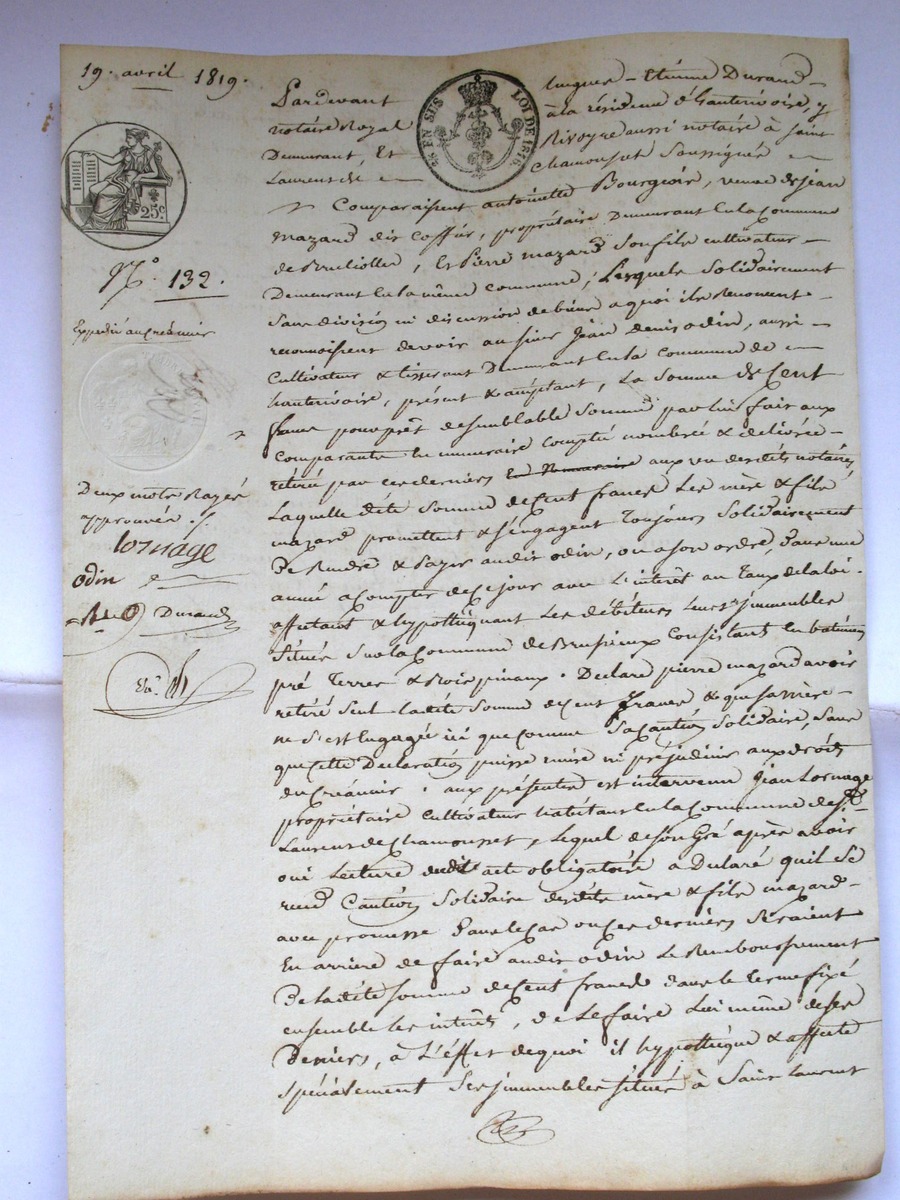 19. avril 1819.
25 EN SUS LOI DE 1816.
25 c.
N.° 132.
Expedié au créancier
Deux mots Rayés
approuvés ./.
Lornage
odin
Durand
Pardevant hugues - Etienne Durand -
notaire Royal à la résidence d'hauterivoire, y
Demeurant, Et Rivoyre aussi notaire à saint
Laurent de - Chamousset Soussignés -
Comparaissent antoinette Bourgeois, veuve de jean
mazard dit Coffür, propriétaire Demeurant En la Commune
de Brullioles, Et Pierre mazard Son fils cultivateur -
Demeurant En la même commune, Lesquels Solidairement
Sans division ni discussion de biens a quoi ils Renoncent -
reconnoissent devoir au sieur Jean denis odin, aussi -
Cultivateur & tisserant Demeurant En la commune de -
hauterivoire, présent & acceptant, La Somme de Cent
francs pour prêt de semblable Somme par lui fait aux
Comparants En numéraire compté nombrée & délivrée -
retiré par ces derniers En Numéraire aux vu desdits notaires
Laquelle dite Somme de Cent francs Les mère & fils
mazard promettent & S'engagent Toujours Solidairement
De Rendre & Payer audit odin, ou a son ordre, Dans une
année a Compter de Ce jour avec L'intérêt au Taux de la loi.
affectant & hypothéquant Les débiteurs Leurs immeubles
Situés Sur la Commune de Brussieux Consistant En batimens
pré Terres & Bois pinaux. Déclare pierre mazard avoir
retiré Seul ladite Somme de Cent francs & que sa mère -
ne S'est Engagée ici que comme Sa Caution Solidaire, Sans
que Cette Déclaration puisse nuire ni préjudicier aux droits
du Créancier. aux présentes est intervenu Jean Lornage
propriétaire cultivateur habitant En la Commune de St.
Laurent de Chamousset, Lequel de Son Gré après avoir
oui Lecture dudit acte obligatoire a Déclaré qu'il Se
rend Caution Solidaire desdits mère & fils mazard -
avec promesse Dans le Cas ou Ces derniers Seraient
En arriere de faire audit odin Le Remboursement
De Ladite Somme de Cent francs dans le terme fixé
ensemble Les intérêts, de Le faire Lui même de Ses
Deniers, à L'éffet de quoi il hypothèque & affecte
Spécialement Ses immeubles Situés à Saint Laurent